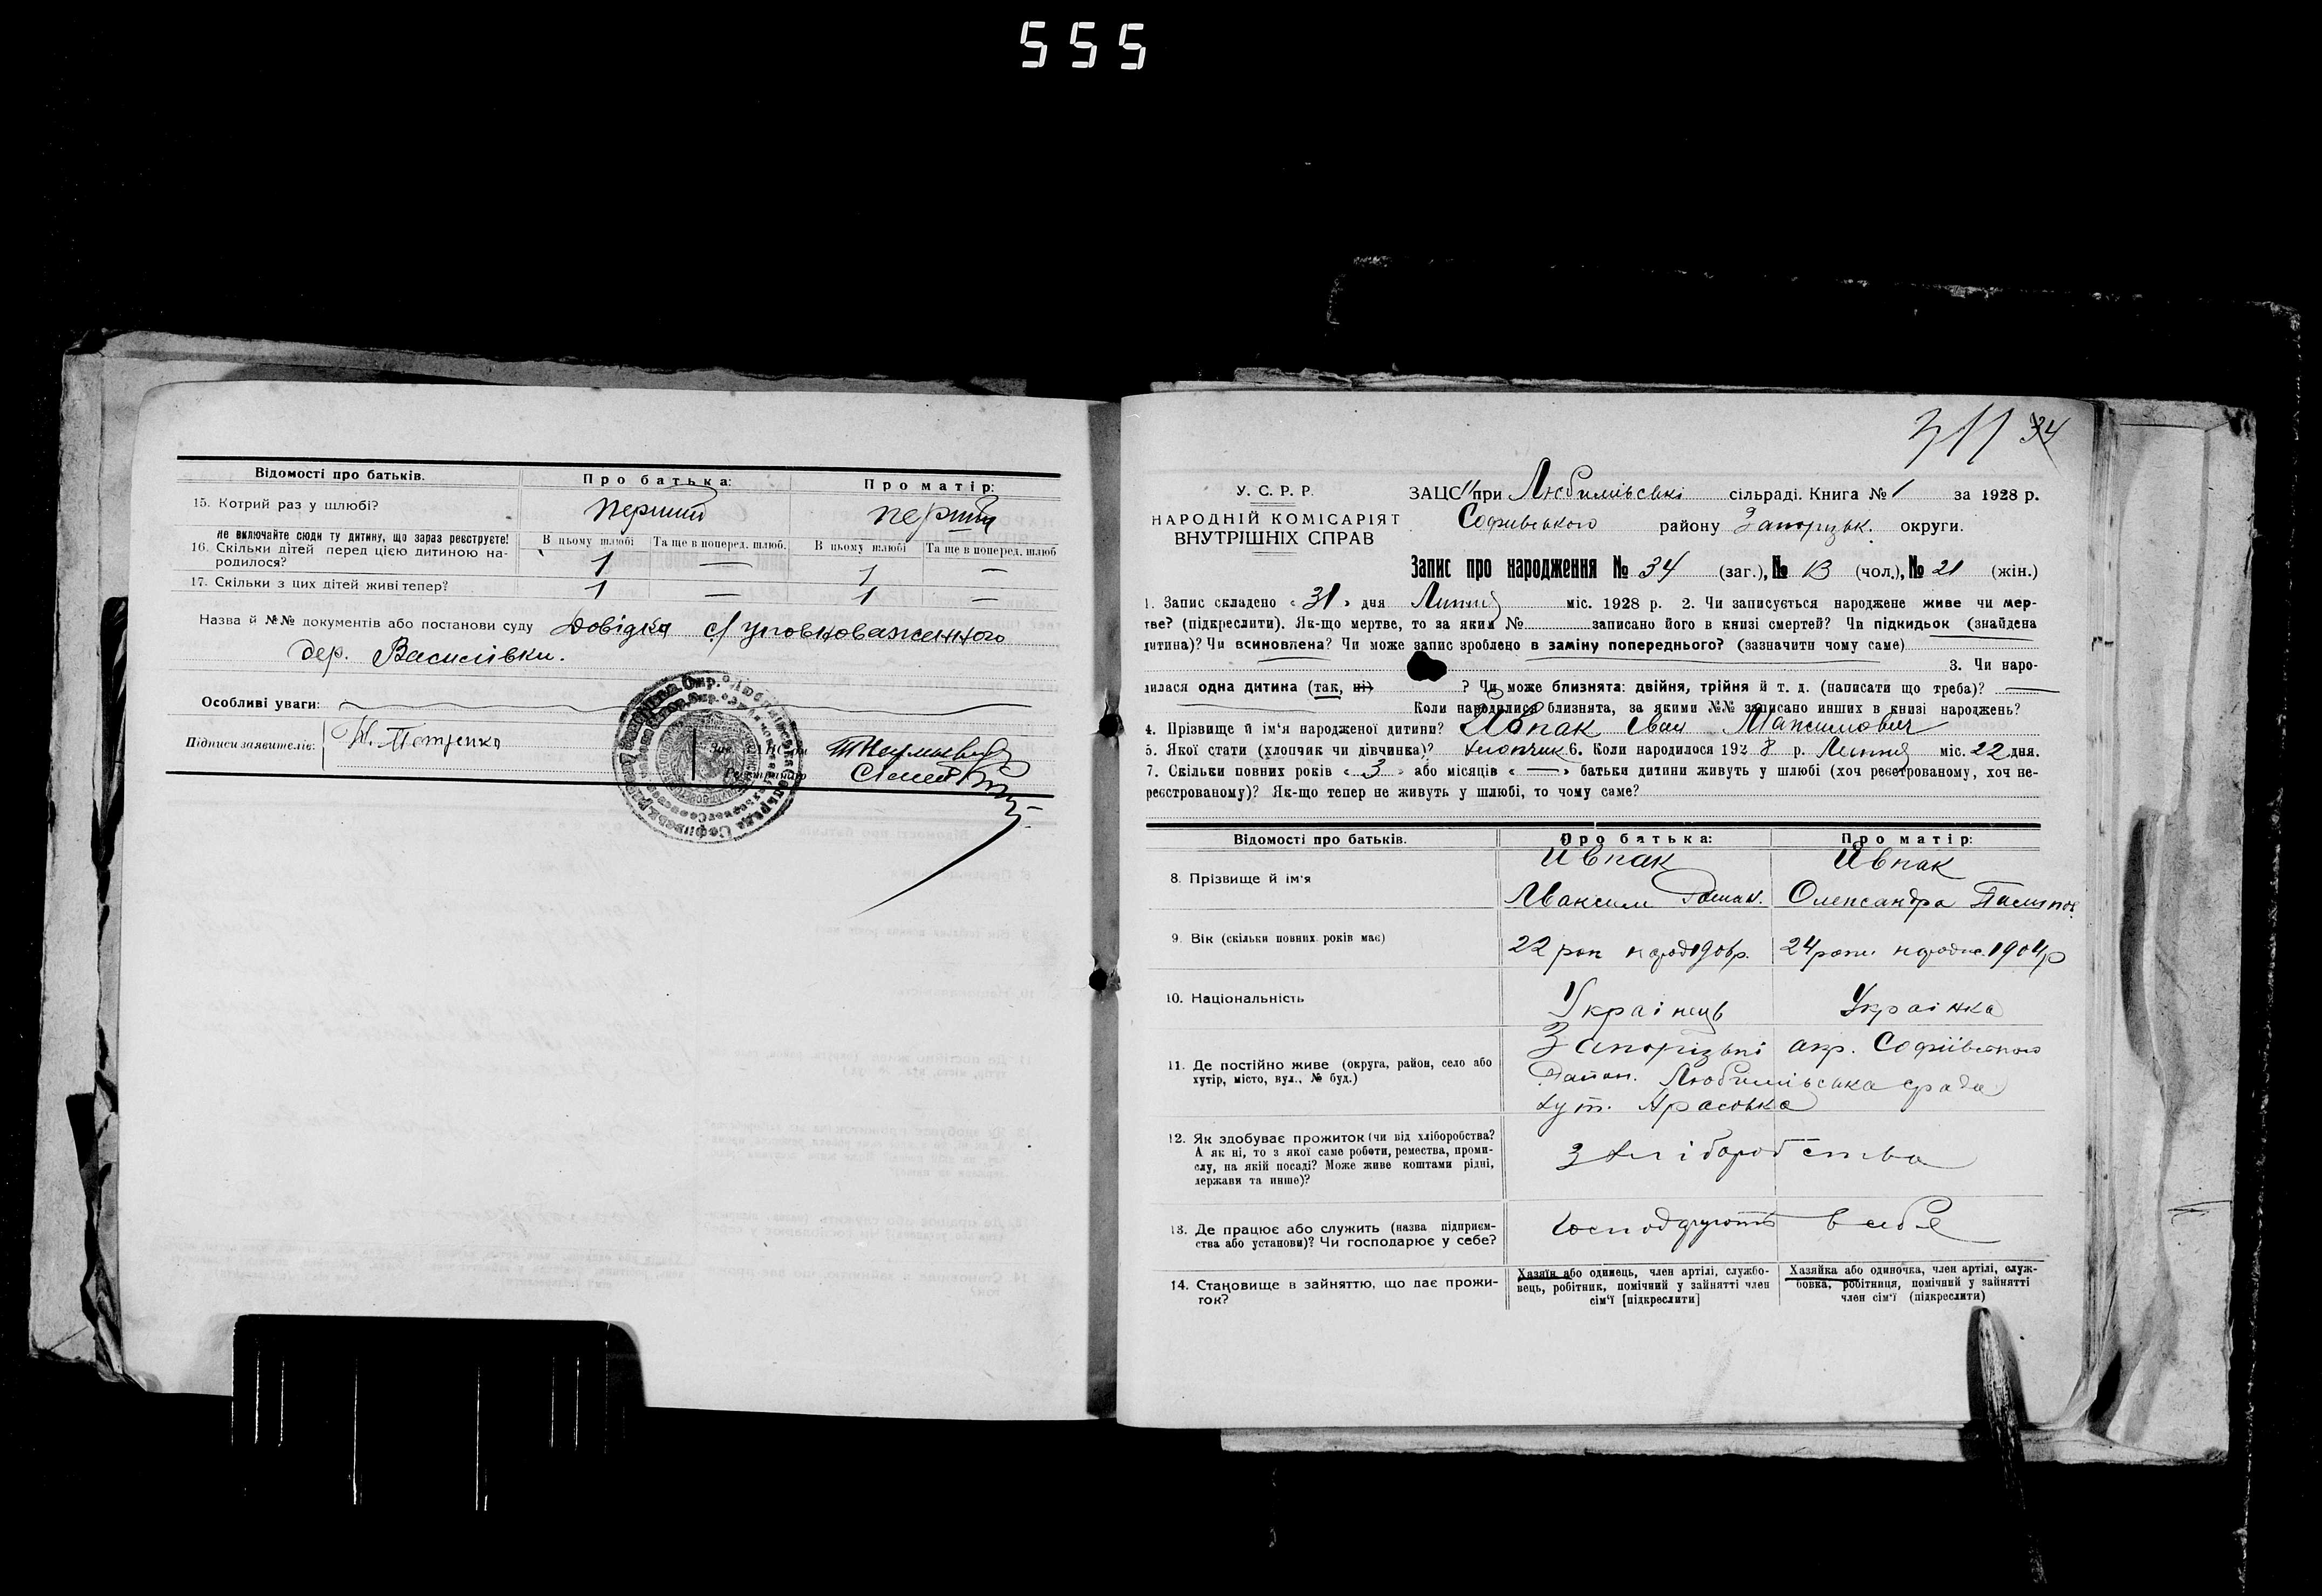 555
Відомості про батьків. Про батька: Про матір:
15. Котрий раз у шлюбі? перший перший
не включайте сюди ту дитину, що зараз реєструєте!
В цьому шлюбі Та ще в поперед. шлюб. В цьому шлюбі Та ще в поперед. шлюб
16. Скільки дітей перед цією дитиною на-
родилося? 1 — 1 —
17. Скільки з цих дітей живі тепер? 1 — 1 —
Назва й №№ документів або постанови суду Довідка с/уповноваженного
дер. Василівки.
Особливі уваги:
Підписи заявителів: Петренко
311 34
У. С. Р. Р.
НАРОДНІЙ КОМІСАРІЯТ
ВНУТРІШНІХ СПРАВ
ЗАЦС при Любимівські сільраді. Книга № 1 за 1928 р.
Софивського району Запорізьк. округи.
Запис про народження № 34 (заг.), № 13 (чол.), № 21 (жін.)
1. Запис складено «31» дня Липня міс. 1928 р. 2. Чи записується народжене живе чи мер-
тве? (підкреслити). Як-що мертве, то за яким № записано його в книзі смертей? Чи підкидьок (знайдена
дитина)? Чи всиновлена? Чи може запис зроблено в заміну попереднього? (зазначити чому саме)
3. Чи наро-
дилася одна дитина (так, ні) ? Чи може близнята: двійня, трійня й т. д. (написати що треба)? —
Коли народилися близнята, за якими №№ записано инших в книзі народжень?
4. Прізвище й ім'я народженої дитини? Ивпак Іван Максимович
5. Якої стати (хлопчик чи дівчинка)? хлопчик 6. Коли народилося 1928 р. Липня міс. 22 дня.
7. Скільки повних років «3» або місяців «—» батьки дитини живуть у шлюбі (хоч реєстрованому, хоч не-
реєстрованому)? Як-що тепер не живуть у шлюбі, то чому саме?
Відомості про батьків. Про батька: Про матір:
Ивпак Ивпак
8. Прізвище й ім'я
Максим Роман. Олександра
9. Вік (скільки повних років має) 22 рок народ 1906р. 24 роки народж. 1904р
10. Національність Українець Українка
Запорізькі окр. Софіївського
11. Де постійно живе (округа, район, село або
хутір, місто, вул., № буд.)
Район. Любимівська срада
хут.
12. Як здобуває прожиток (чи від хліборобства?
А як ні, то з якої саме роботи, ремества, проми-
слу, на якій посаді? Може живе коштами рідні,
держави та инше)?
З хліборобства
13. Де працює або служить (назва підприєм-
ства або установи)? Чи господарює у себе?
Господарують в себе
14. Становище в зайняттю, що дає прожи-
ток?
Хазяїн або одинець, член артілі, службо-
вець, робітник, помічний у зайнятті член
сім'ї [підкреслити]
Хазяйка або одиночка, член артілі, служ-
бовка, робітниця, помічний у зайнятті
член сім'ї (підкреслити)